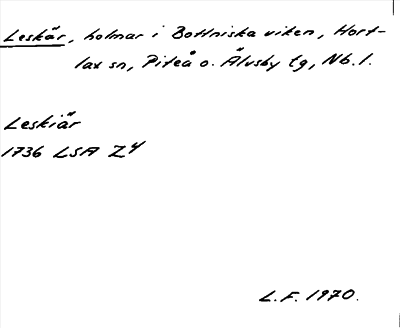 Leskär, holmar i Bottniska viken, Hort-
lax sn, Piteå o. Älvsby tg, Nb. l.
Leskiär
1736 LSA Z4
L.F. 1970.